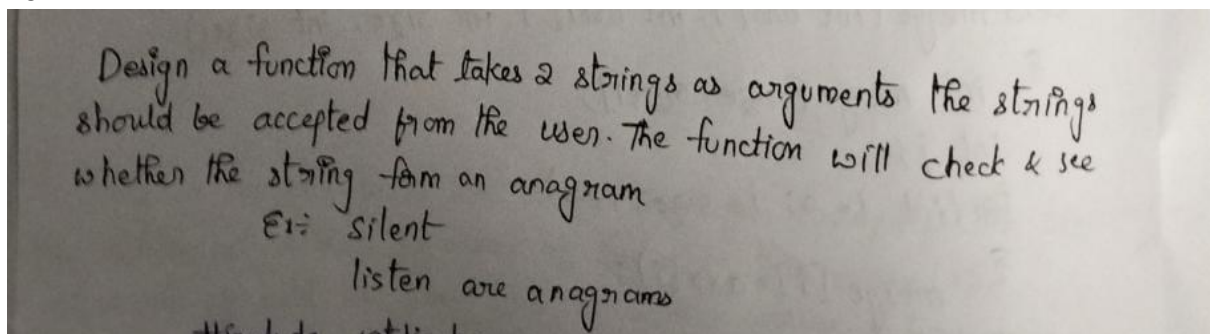 Design a function that takes 2 strings as arguments the strings
should be accepted from the user. The function will check & see
whether the string form an anagram
Ex:- silent
listen are anagrams